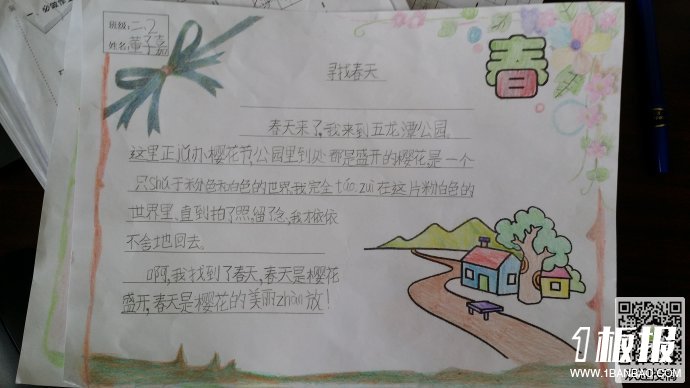 班级:二.2
姓名:董子嘉
春
寻找春天
春天来了,我来到五龙潭公园.
这里正以办樱花节,公园里到处都是盛开的樱花,是一个
只shǔ于粉色和白色的世界,我完全táo zuì在这片粉白色的
世界里,直到拍了照,留了念,我才依依
不舍地回去。
啊,我找到了春天,春天是樱花
盛开,春天是樱花的美丽zhàn放!
1板报
WWW.1BANBAO.COM